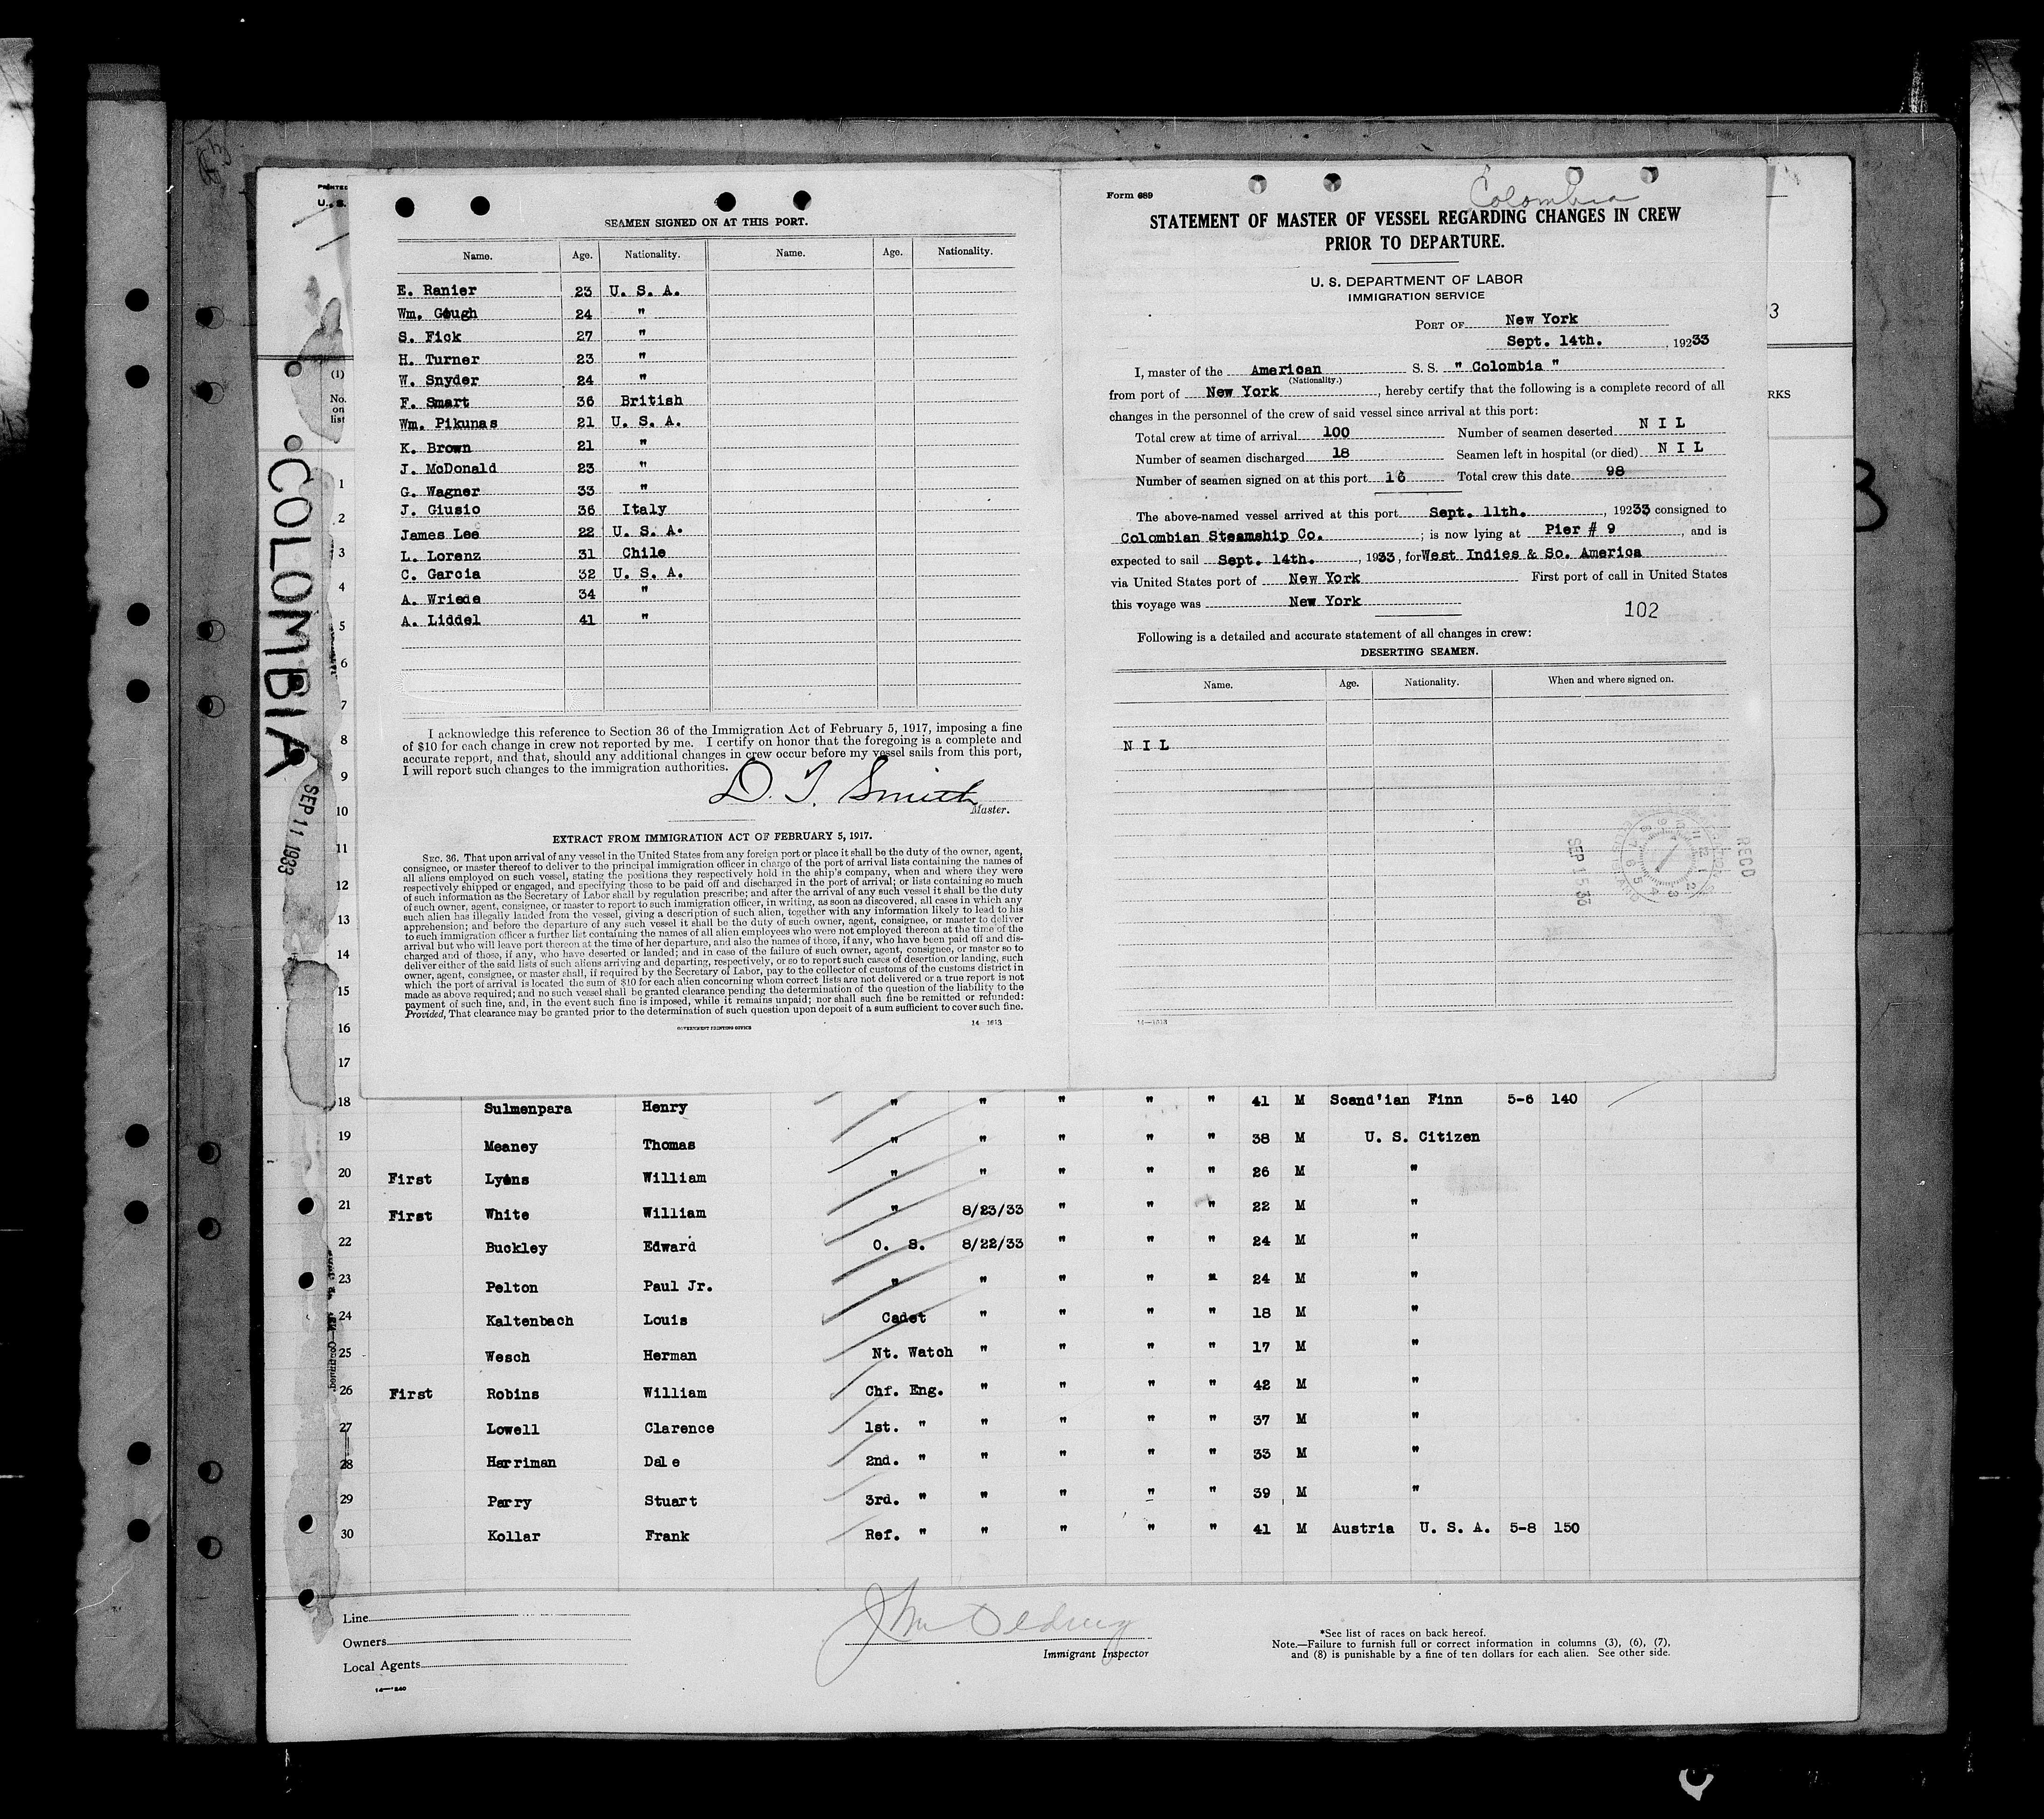 PRINTED
U. S.
(1)
No.
on
list
COLOMBIA
SEP 11 1933
SEAMEN SIGNED ON AT THIS PORT.
Name. Age. Nationality. Name. Age. Nationality.
E. Ranier 23 U. S. A.
Wm. Gough 24 "
S. Fick 27 "
H. Turner 23 "
W. Snyder 24 "
F. Smart 36 British
Wm. Pikunas 21 U. S. A.
K. Brown 21 "
J. McDonald 23 "
G. Wagner 33 "
J. Giusio 36 Italy
James Lee 22 U. S. A.
L. Lorenz 31 Chile
C. Garcia 32 U. S. A.
A. Wriede 34 "
A. Liddel 41 "
I acknowledge this reference to Section 36 of the Immigration Act of February 5, 1917, imposing a fine
of $10 for each change in crew not reported by me. I certify on honor that the foregoing is a complete and
accurate report, and that, should any additional changes in crew occur before my vessel sails from this port,
I will report such changes to the immigration authorities.
D. T. Smith
Master.
EXTRACT FROM IMMIGRATION ACT OF FEBRUARY 5, 1917.
SEC. 36. That upon arrival of any vessel in the United States from any foreign port or place it shall be the duty of the owner, agent,
consignee, or master thereof to deliver to the principal immigration officer in charge of the port of arrival lists containing the names of
all aliens employed on such vessel, stating the positions they respectively hold in the ship's company, when and where they were
respectively shipped or engaged, and specifying those to be paid off and discharged in the port of arrival; or lists containing so much
of such information as the Secretary of Labor shall by regulation prescribe; and after the arrival of any such vessel it shall be the duty
of such owner, agent, consignee, or master to report to such immigration officer, in writing, as soon as discovered, all cases in which any
such alien has illegally landed from the vessel, giving a description of such alien, together with any information likely to lead to his
apprehension; and before the departure of any such vessel it shall be the duty of such owner, agent, consignee, or master to deliver
to such immigration officer a further list containing the names of all alien employees who were not employed thereon at the time of the
arrival but who will leave port thereon at the time of her departure, and also the names of those, if any, who have been paid off and dis-
charged and of those, if any, who have deserted or landed; and in case of the failure of such owner, agent, consignee, or master so to
deliver either of the said lists of such aliens arriving and departing, respectively, or so to report such cases of desertion or landing, such
owner, agent, consignee, or master shall, if required by the Secretary of Labor, pay to the collector of customs of the customs district in
which the port of arrival is located the sum of $10 for each alien concerning whom correct lists are not delivered or a true report is not
made as above required; and no such vessel shall be granted clearance pending the determination of the question of the liability to the
payment of such fine, and, in the event such fine is imposed, while it remains unpaid; nor shall such fine be remitted or refunded:
Provided, That clearance may be granted prior to the determination of such question upon deposit of a sum sufficient to cover such fine.
GOVERNMENT PRINTING OFFICE 14—1613
Form 689
Colombia
STATEMENT OF MASTER OF VESSEL REGARDING CHANGES IN CREW
PRIOR TO DEPARTURE.
U. S. DEPARTMENT OF LABOR
IMMIGRATION SERVICE
PORT OF New York
Sept. 14th. , 19233
I, master of the American S. S. " Colombia "
(Nationality.)
from port of New York , hereby certify that the following is a complete record of all
changes in the personnel of the crew of said vessel since arrival at this port:
Total crew at time of arrival 100 Number of seamen deserted N I L
Number of seamen discharged 18 Seamen left in hospital (or died) N I L
Number of seamen signed on at this port 16 Total crew this date 98
The above-named vessel arrived at this port Sept. 11th. , 19233 consigned to
Colombian Steamship Co. ; is now lying at Pier # 9 , and is
expected to sail Sept. 14th. , 1933, for West Indies & So. America
via United States port of New York First port of call in United States
this voyage was New York
102
Following is a detailed and accurate statement of all changes in crew:
DESERTING SEAMEN.
Name. Age. Nationality. When and where signed on.
N I L
RECD
SEP 15 33
14—1613
3
RKS
1
2
3
4
5
6
7
8
9
10
11
12
13
14
15
16
17
18 Sulmenpara Henry " " " " " 41 M Scand'ian Finn 5-6 140
19 Meaney Thomas " " " " " 38 M U. S. Citizen
20 First Lyons William " " " " " 26 M "
21 First White William " 8/23/33 " " " 22 M "
22 Buckley Edward O. S. 8/22/33 " " " 24 M "
23 Pelton Paul Jr. " " " " " 24 M "
24 Kaltenbach Louis Cadet " " " " 18 M "
25 Wesch Herman Nt. Watch " " " " 17 M "
26 First Robins William Chf. Eng. " " " " 42 M "
27 Lowell Clarence 1st. " " " " " 37 M "
28 Harriman Dale 2nd. " " " " " 33 M "
29 Parry Stuart 3rd. " " " " " 39 M "
30 Kollar Frank Ref. " " " " " 41 M Austria U. S. A. 5-8 150
Line
Owners
Local Agents
14—1240
Immigrant Inspector
*See list of races on back hereof.
Note.—Failure to furnish full or correct information in columns (3), (6), (7),
and (8) is punishable by a fine of ten dollars for each alien. See other side.